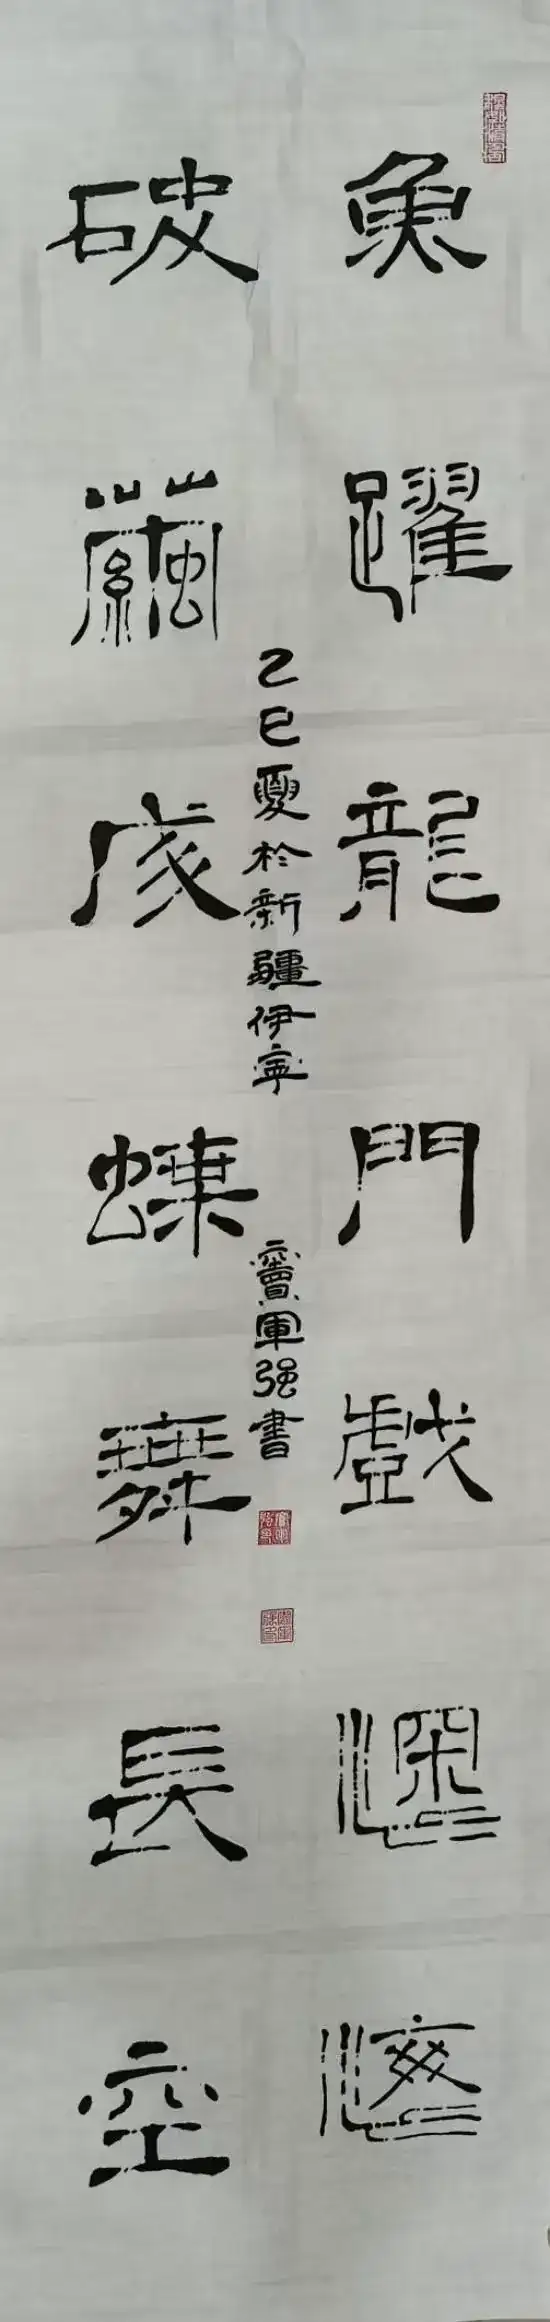 魚躍龍門戲深
破繭成蝶舞長空
乙巳夏於新疆伊寧
竇軍强書